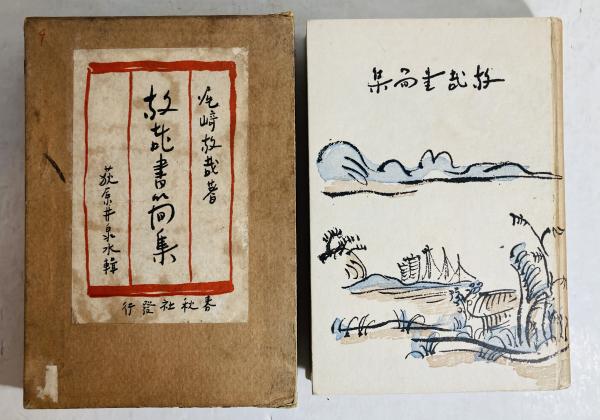 尾崎放哉著
放哉書簡集
荻原井泉水輯
春秋社發行
放哉書簡集